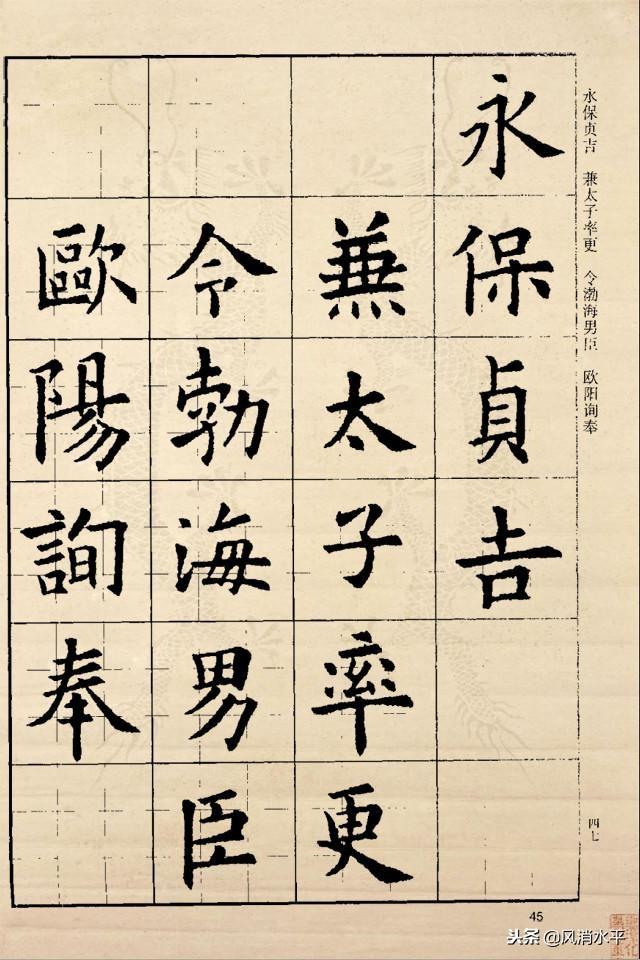 永保貞吉
兼太子率更
令勃海男臣
歐陽詢奉
永保贞吉 兼太子率更 令渤海男臣 欧阳询奉
四七
45
头条 @风消水平